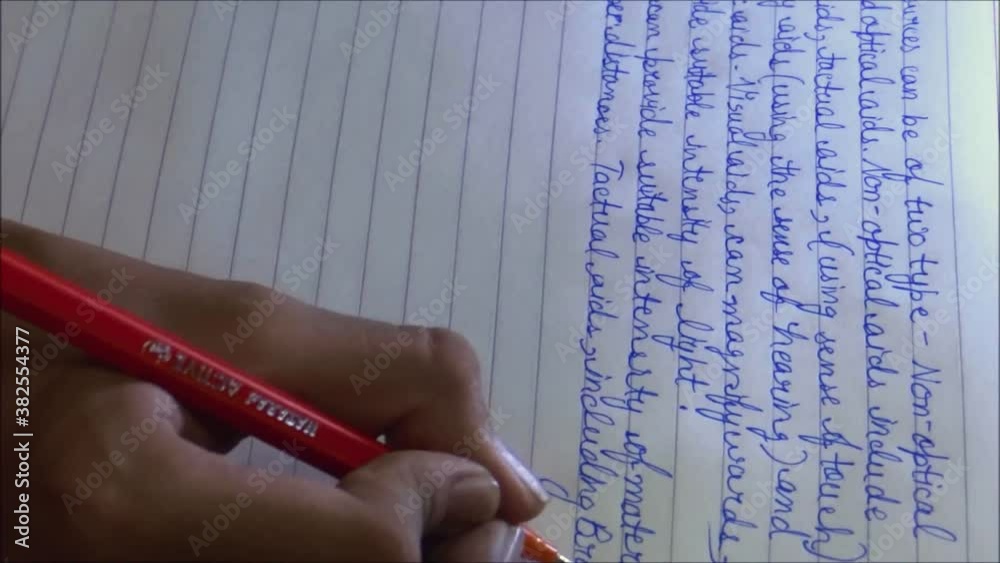 urces can be of two type - Non-optical
d optical aids. Non-optical aids include
ids, tactual aids, (using sense of touch)
y aids (using the sense of hearing) and
l aids. Visual aids, can magnify words,
de suitable intensity of light.
can provide suitable intensity of mater
er distances. Tactual aids, including Bra
ACTIVE
Adobe Stock | #382554377